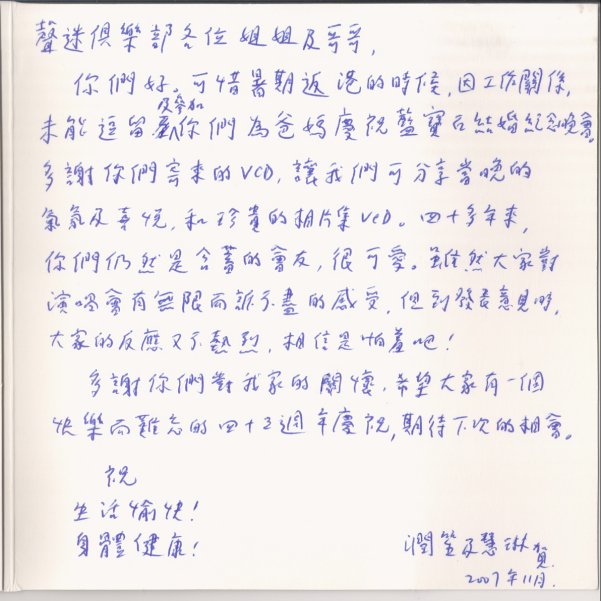 聲迷俱樂部各位姐姐及哥哥,
你們好。可惜暑期返港的時候,因工作關係,
未能逗留及參加你們為爸媽慶祝藍寶石結婚紀念晚會。
多謝你們寄來的VCD,讓我們可分享當晚的
氣氛及喜悅,和珍貴的相片集VCD。四十多年來,
你們仍然是含蓄的會友,很可愛。雖然大家對
演唱會有無限而訴不盡的感受,但到發表意見時,
大家的反應又不熱烈,相信是怕羞吧!
多謝你們對我家的關懷,希望大家有一個
快樂而難忘的四十五週年慶祝,期待下次的相會。
祝
生活愉快!
身體健康!
潤笙及慧琳賀
2007年11月.